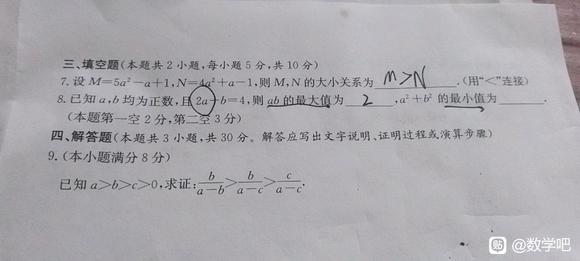 三、填空题(本题共2小题,每小题5分,共10分)
7.设M=5a²-a+1,N=4a²+a-1,则M,N的大小关系为 M>N .(用“<”连接)
8.已知a,b均为正数,且2a+b=4,则ab的最大值为 2 ,a²+b²的最小值为
(本题第一空2分,第二空3分)
四、解答题(本题共3小题,共30分。解答应写出文字说明、证明过程或演算步骤)
9.(本小题满分8分)
已知a>b>c>0,求证:b/(a-b)>b/(a-c)>c/(a-c).
贴 @数学吧